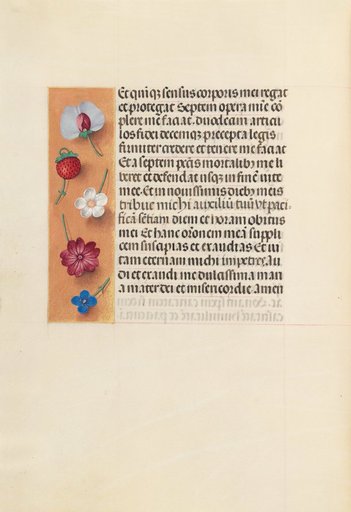 Et qui qͥ sensus corporis mei regat
et protegat Septem opera mīe cō
plere me faciat. duodecim articu
los fidei decemqȝ precepta legis
firmiter credere et tenere me faciat
Et a septem pctīs mortalibȝ me li
beret et defendat usqȝ in finē uite
mee. Et in nouissimis diebȝ meis
tribue michi auxiliū tuū vt paci
ficā setiam diem et horam obitus
mei Et hanc oronem meā suppli
cem suscipias et exaudias. Et ui
tam eternam michi impetres. Au
di et exaudi me dulcissima mari
a mater dei et misericordie amen